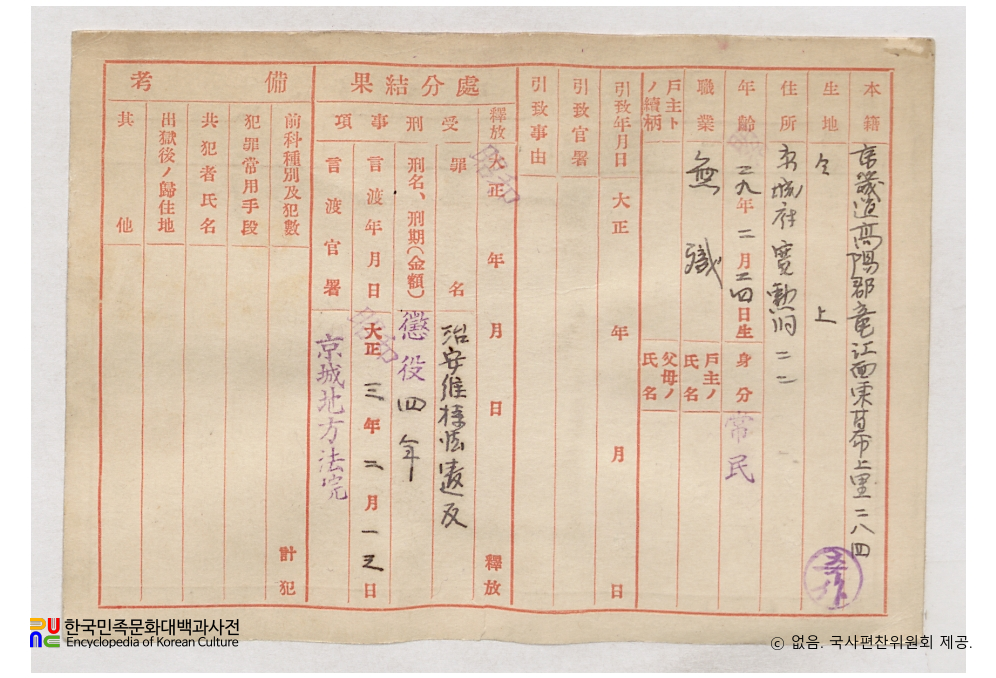 本籍 京畿道高陽郡龍江面東幕上里二八四
生地 仝上
住所 京城府寛勲洞二二
年齢 二九年二月二四日生
身分 常民
職業 無職
戶主ノ氏名
戶主トノ續柄
父母ノ氏名
引致年月日 大正 年 月 日
引致官署
引致事由
處分結果
釋放 大正 昭和 年 月 日 釋放
受刑事項
罪名 治安維持法違反
刑名、刑期(金額) 懲役四年
言渡年月日 大正 昭和 三年二月一三日
言渡官署 京城地方法院
備考
前科種別及犯數 計 犯
犯罪常用手段
共犯者氏名
出獄後ノ歸住地
其他
한국민족문화대백과사전
Encyclopedia of Korean Culture
ⓒ 없음. 국사편찬위원회 제공.